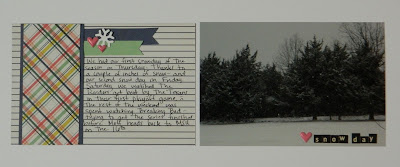 We had our first snowday of the
season on Thursday. Thanks to
a couple of inches of snow and
our second snow day on Friday.
Saturday we watched the
get beat by the Texans
in their first playoff game &
the rest of the weekend was
spent watching Breaking Bad &
trying to get "The Series" finished
before Matt heads back to MSU
on the 16th
snow day